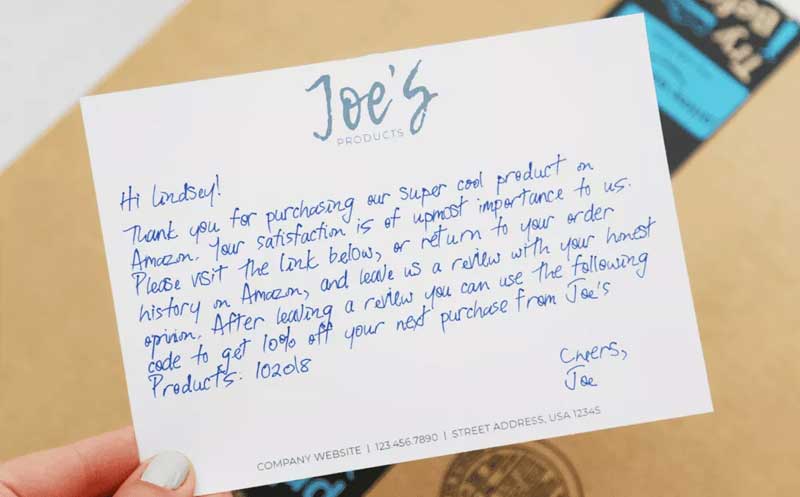 Joe's
PRODUCTS
Hi Lindsey!
Thank you for purchasing our super cool product on
Amazon. Your satisfaction is of upmost importance to us.
Please visit the link below, or return to your order
history on Amazon, and leave us a review with your honest
opinion. After leaving a review you can use the following
code to get 10% off your next purchase from Joe's
Products: 102018
Cheers,
Joe
COMPANY WEBSITE | 123.456.7890 | STREET ADDRESS, USA 12345
Try